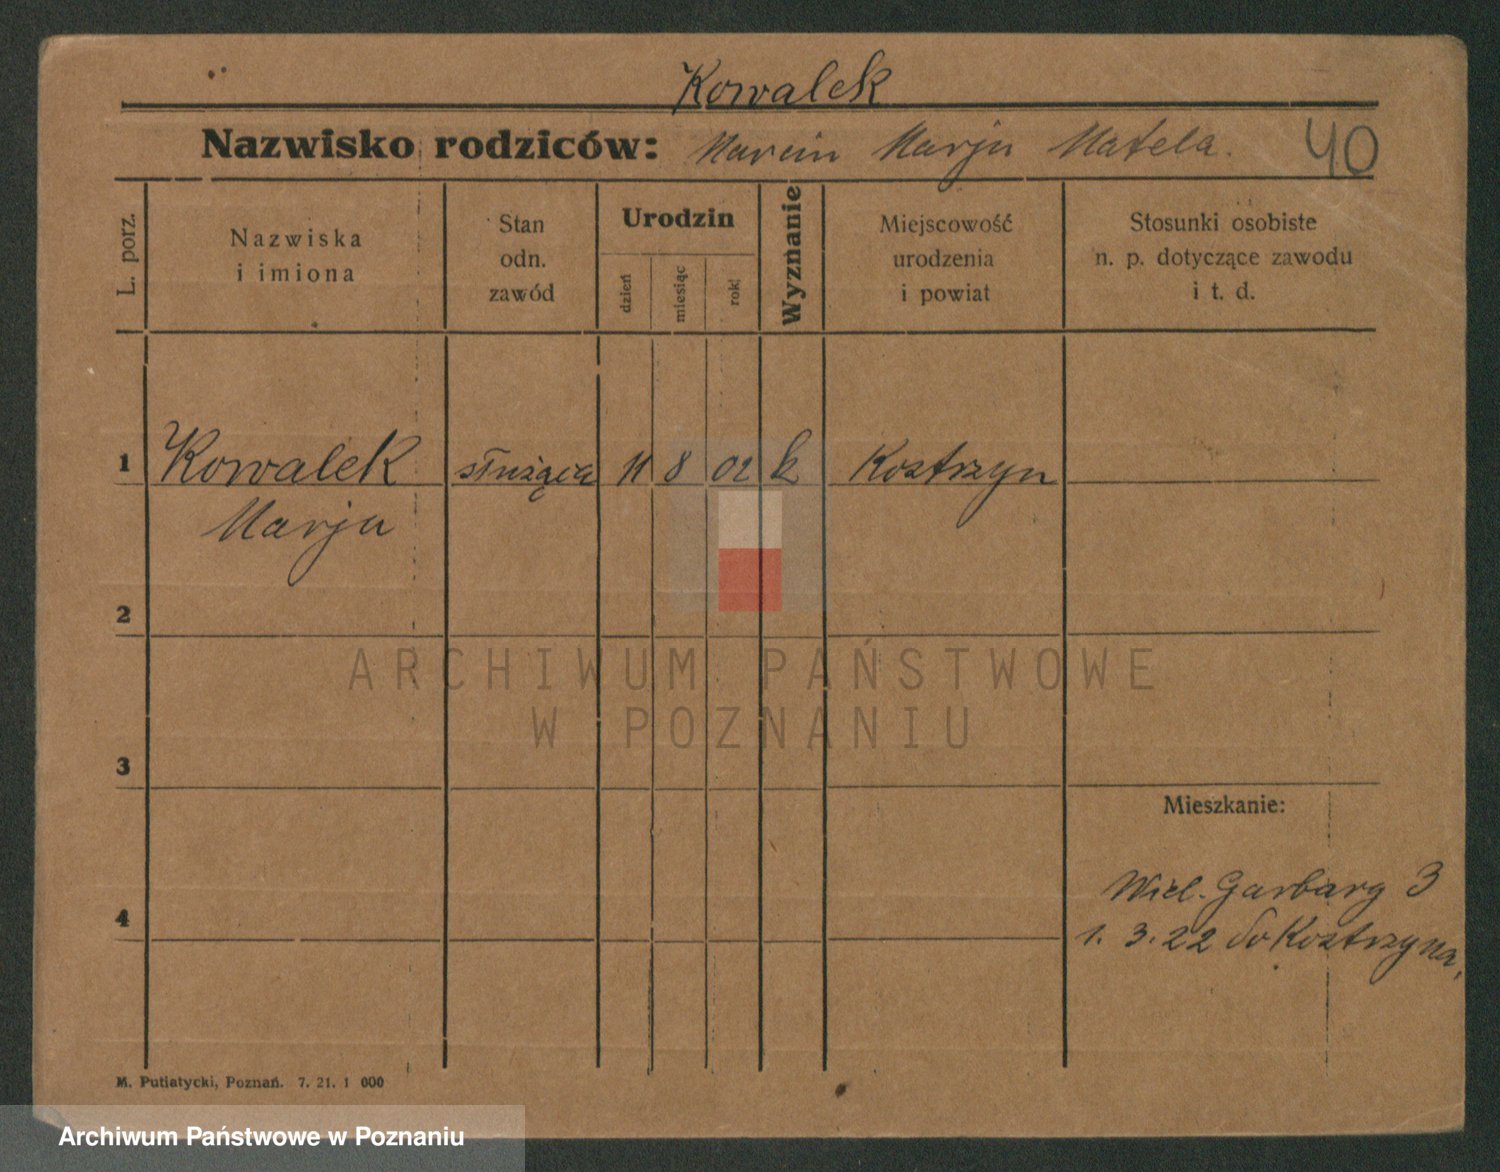 Kowalek
Nazwisko rodziców: Marcin Marja Matela.
40
L. porz.
Nazwiska
i imiona
Stan
odn.
zawód
Urodzin
dzień
miesiąc
rok
Wyznanie
Miejscowość
urodzenia
i powiat
Stosunki osobiste
n. p. dotyczące zawodu
i t. d.
1 Kowalek służąca 11 8 02 k Kostrzyn
Marja
2
ARCHIWUM PAŃSTWOWE
W POZNANIU
3
Mieszkanie:
Wiel. Garbary 3
4
1. 3. 22 do Kostrzyna,
M. Putiatycki, Poznań. 7. 21. 1 000
Archiwum Państwowe w Poznaniu